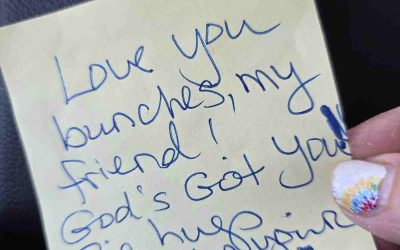 Love you
bunches, my
friend!
God's Got you
Big hug